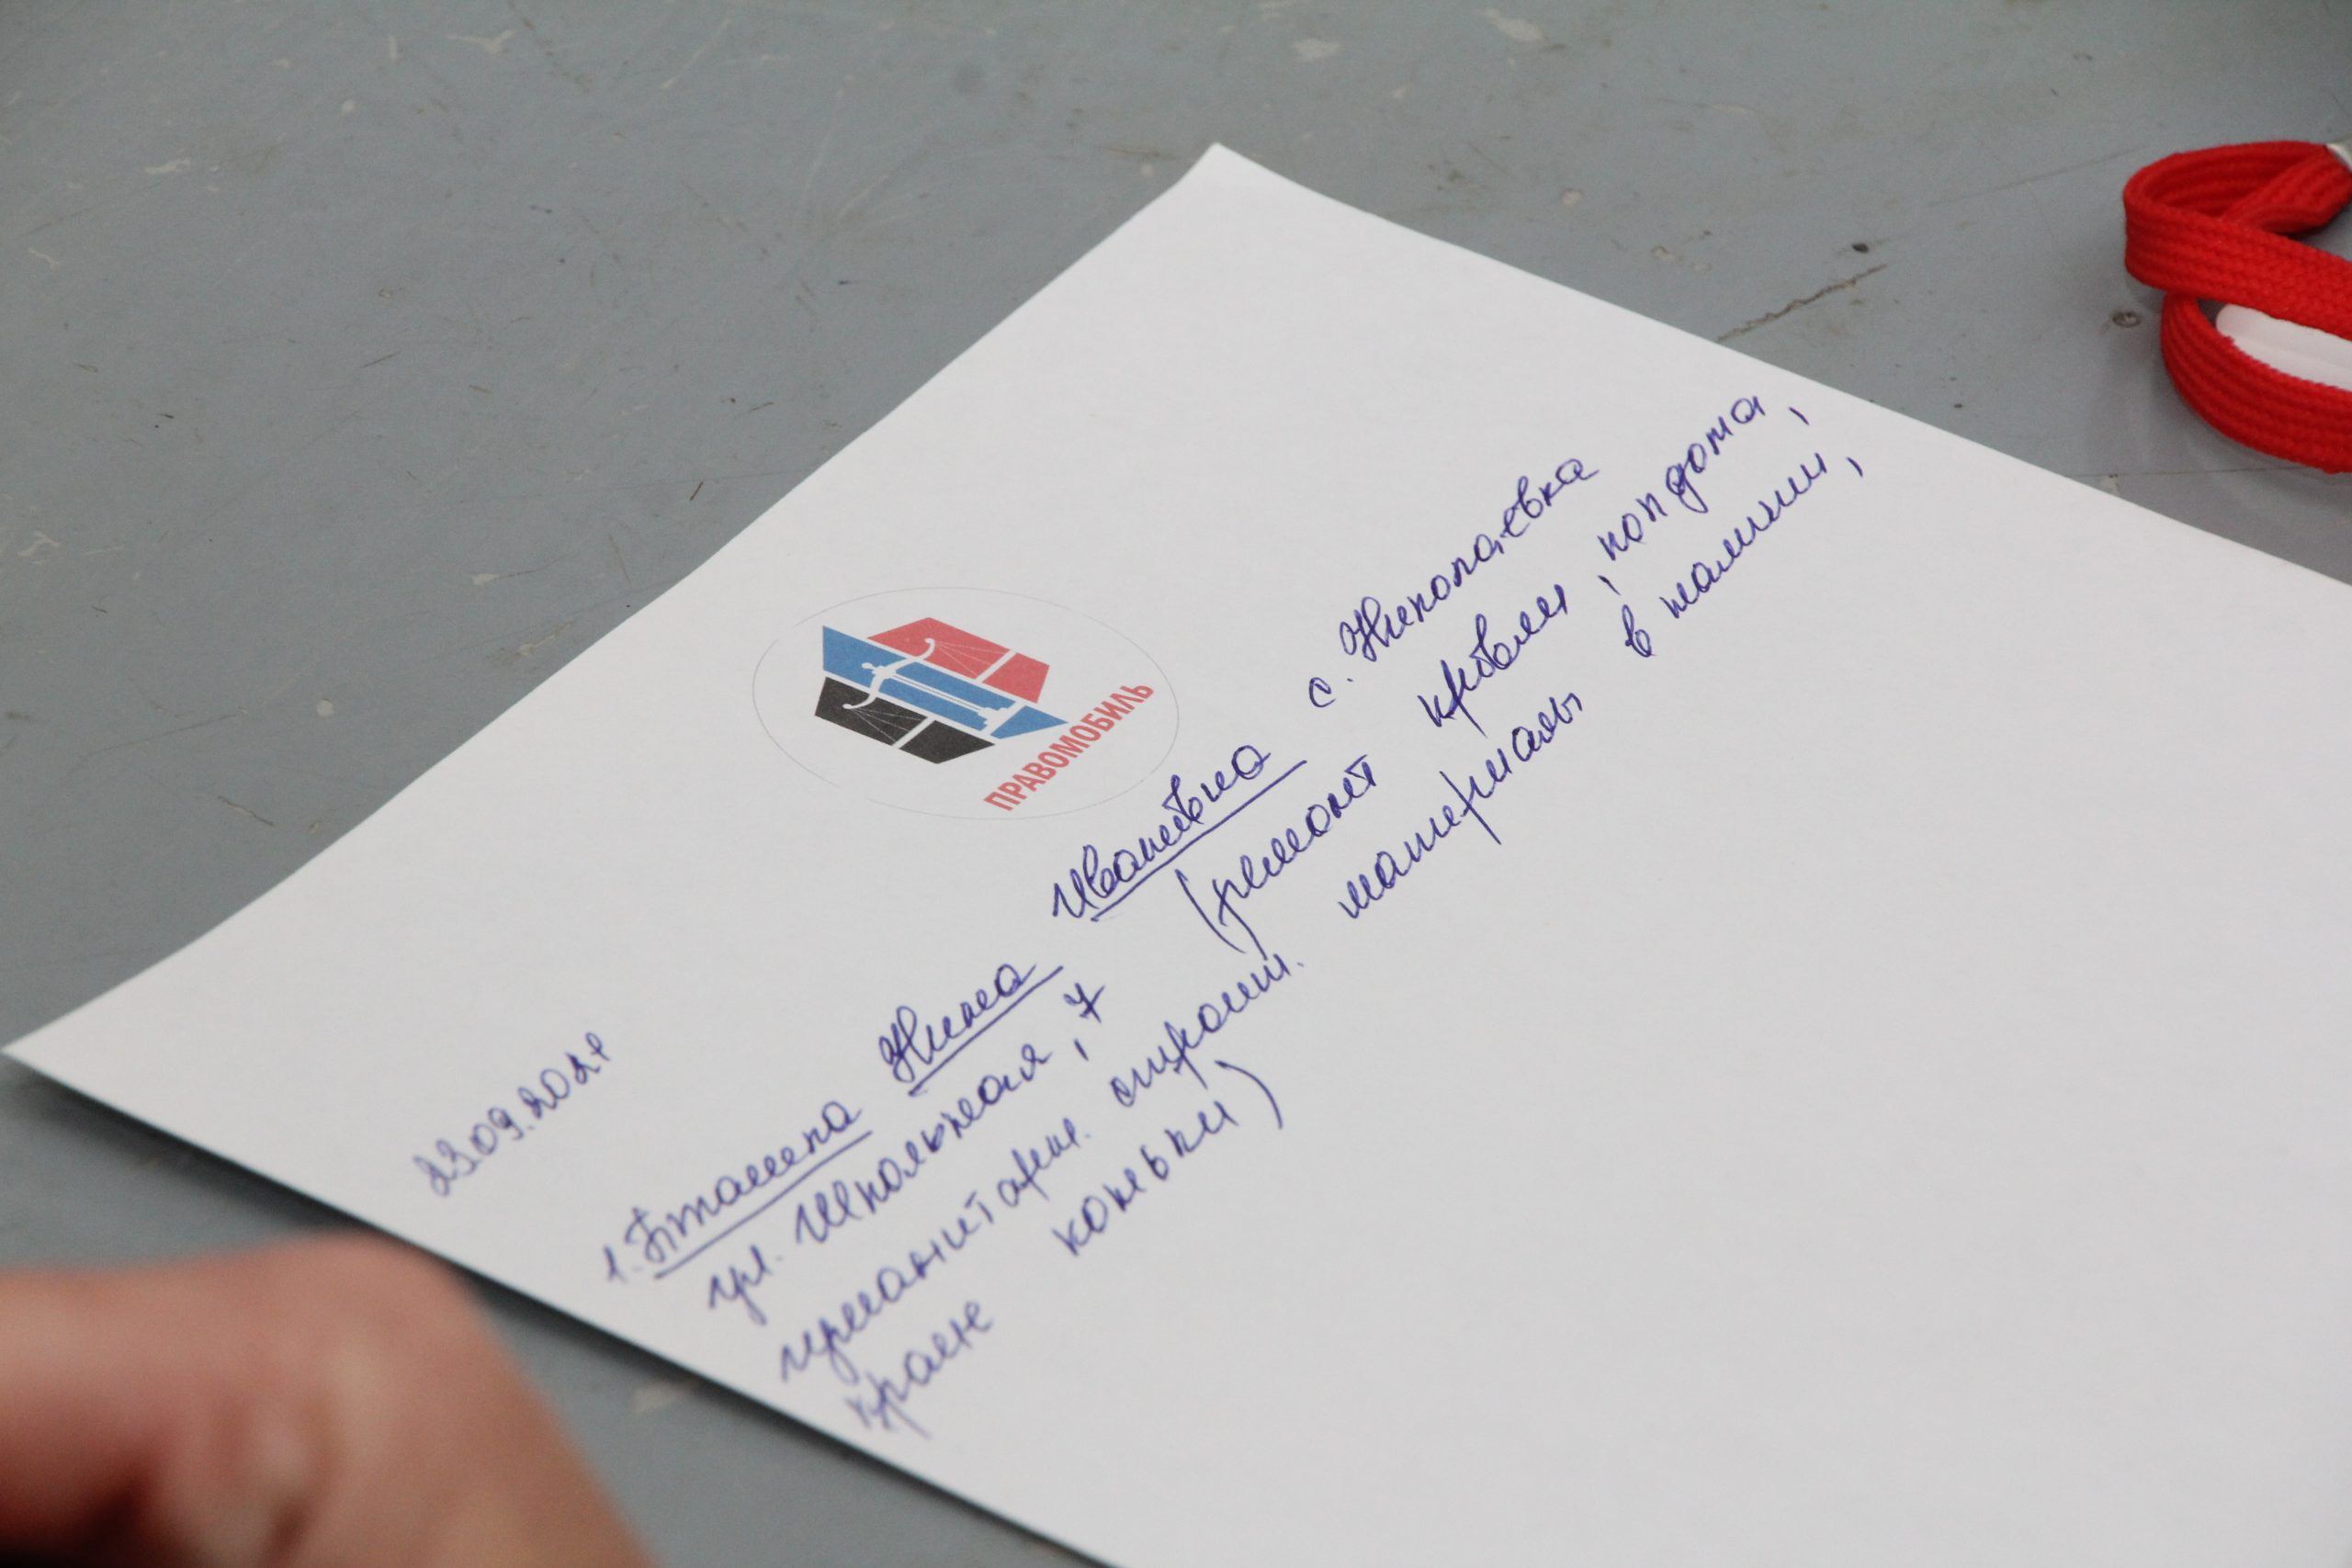 ПРАВОМОБИЛЬ
23.09.202
1. Нина Ивановна с. Николаевка
ул. Школьная, 7 (ремонт кровли, пол дома,
строит. материалы в наличии,
коньки)